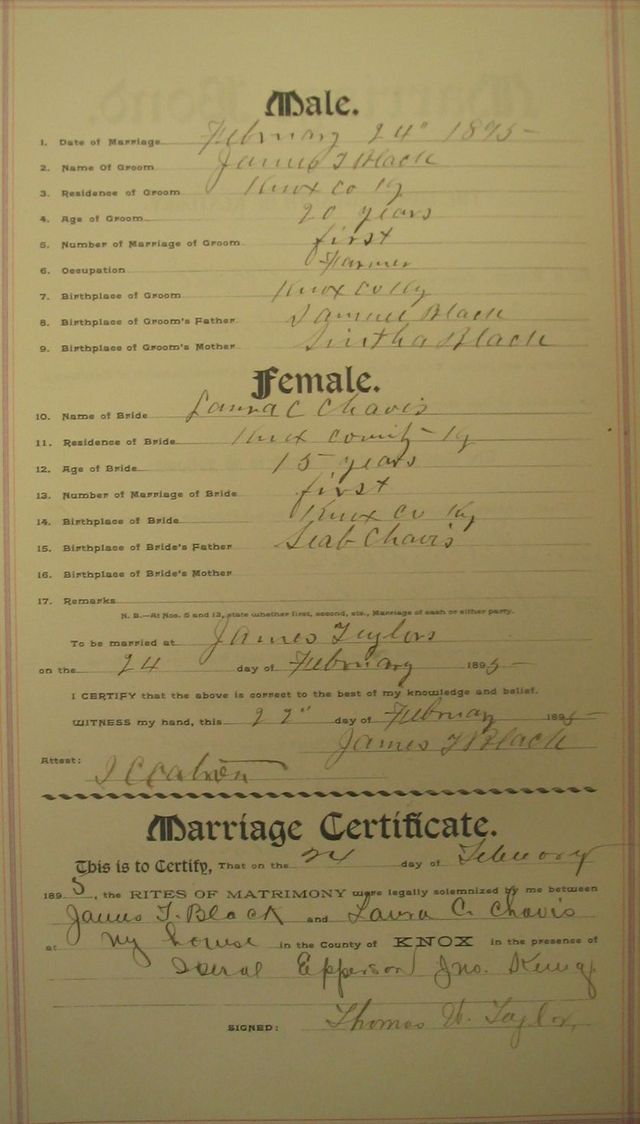 Male.
1. Date of Marriage February 24" 1895
2. Name Of Groom James T Black
3. Residence of Groom Knox Co Ky
4. Age of Groom 20 years
5. Number of Marriage of Groom first
6. Occupation Farmer
7. Birthplace of Groom Knox Co Ky
8. Birthplace of Groom's Father Samuel Black
9. Birthplace of Groom's Mother Black
Female.
10. Name of Bride Laura C Chavis
11. Residence of Bride Knox County Ky
12. Age of Bride 15 years
13. Number of Marriage of Bride first
14. Birthplace of Bride Knox Co Ky
15. Birthplace of Bride's Father Seab Chavis
16. Birthplace of Bride's Mother
17. Remarks
N. B.—At Nos. 5 and 13, state whether first, second, etc., Marriage of each or either party.
To be married at James Taylors
on the 24 day of February 1895
I CERTIFY that the above is correct to the best of my knowledge and belief.
WITNESS my hand, this 22" day of February 1895
James T Black
Attest:
Marriage Certificate.
This is to Certify, That on the 24 day of February
1895, the RITES OF MATRIMONY were legally solemnized by me between
James T. Black and Laura C. Chavis
at my house in the County of KNOX in the presence of
Epperson Jno. King
SIGNED: Thomas W. Taylor